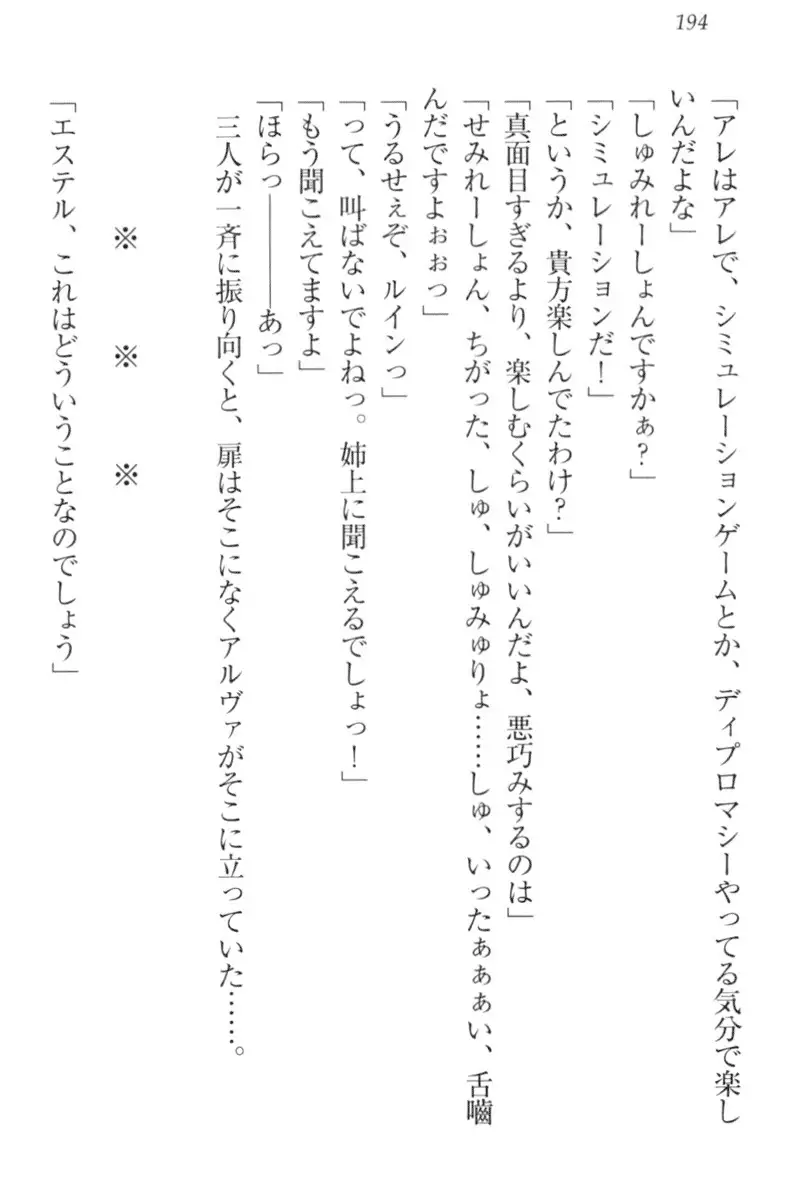 194
「アレはアレで、シミュレーションゲームとか、ディプロマシーやってる気分で楽し
いんだよな」
「しゅみれーしょんですかぁ?」
「シミュレーションだ!」
「というか、貴方楽しんでたわけ?」
「真面目すぎるより、楽しむくらいがいいんだよ、悪巧みするのは」
「せみれーしょん、ちがった、しゅ、しゅみゅりょ……しゅ、いったぁぁぁい、舌嚙
んだですよぉぉっ」
「うるせぇぞ、ルインっ」
「って、叫ばないでよねっ。姉上に聞こえるでしょっ!」
「もう聞こえてますよ」
「ほらっ――――あっ」
三人が一斉に振り向くと、扉はそこになくアルヴァがそこに立っていた……。
※ ※ ※
「エステル、これはどういうことなのでしょう」